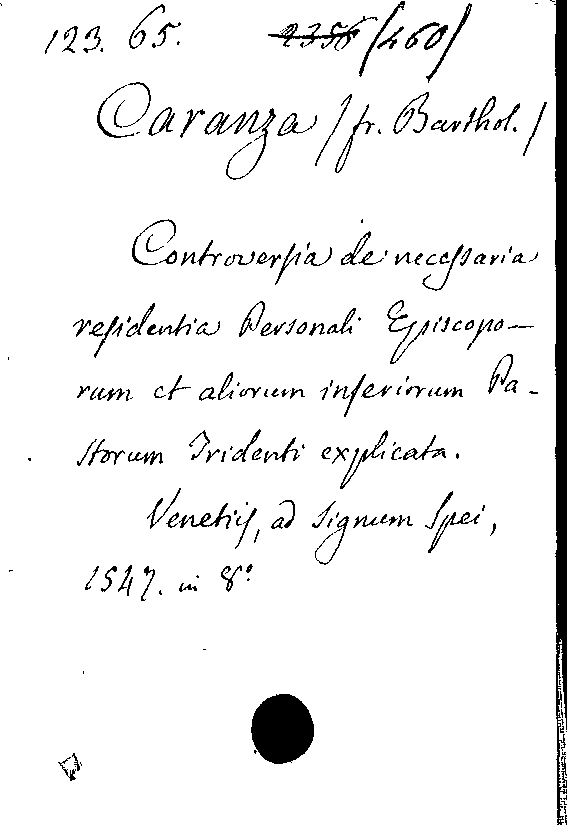 123. 65. 2356 (460)
Caranza /fr. Barthol./
Controversia de necessaria
residentia Personali Episcopo-
rum et aliorum inferiorum Pa-
storum Tridenti explicata.
Venetiis, ad signum Spei,
1547. in 8º